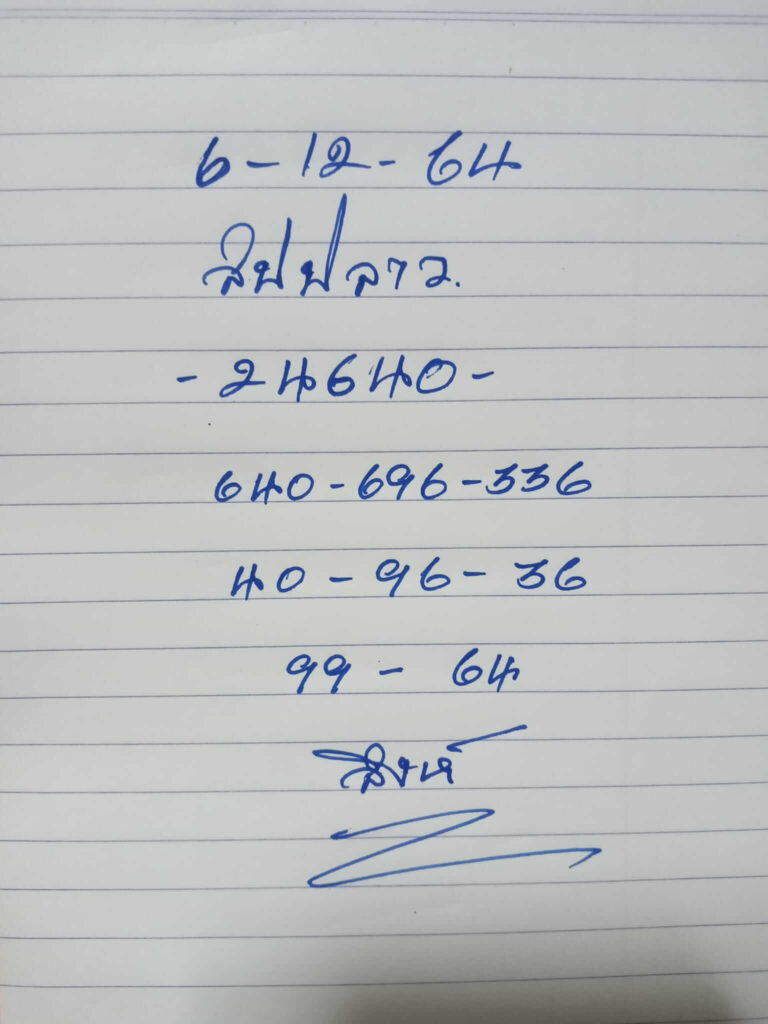 6-12-64
สิปปลาว.
-24640-
640-696-336
40-96-36
99-64
สิงห์